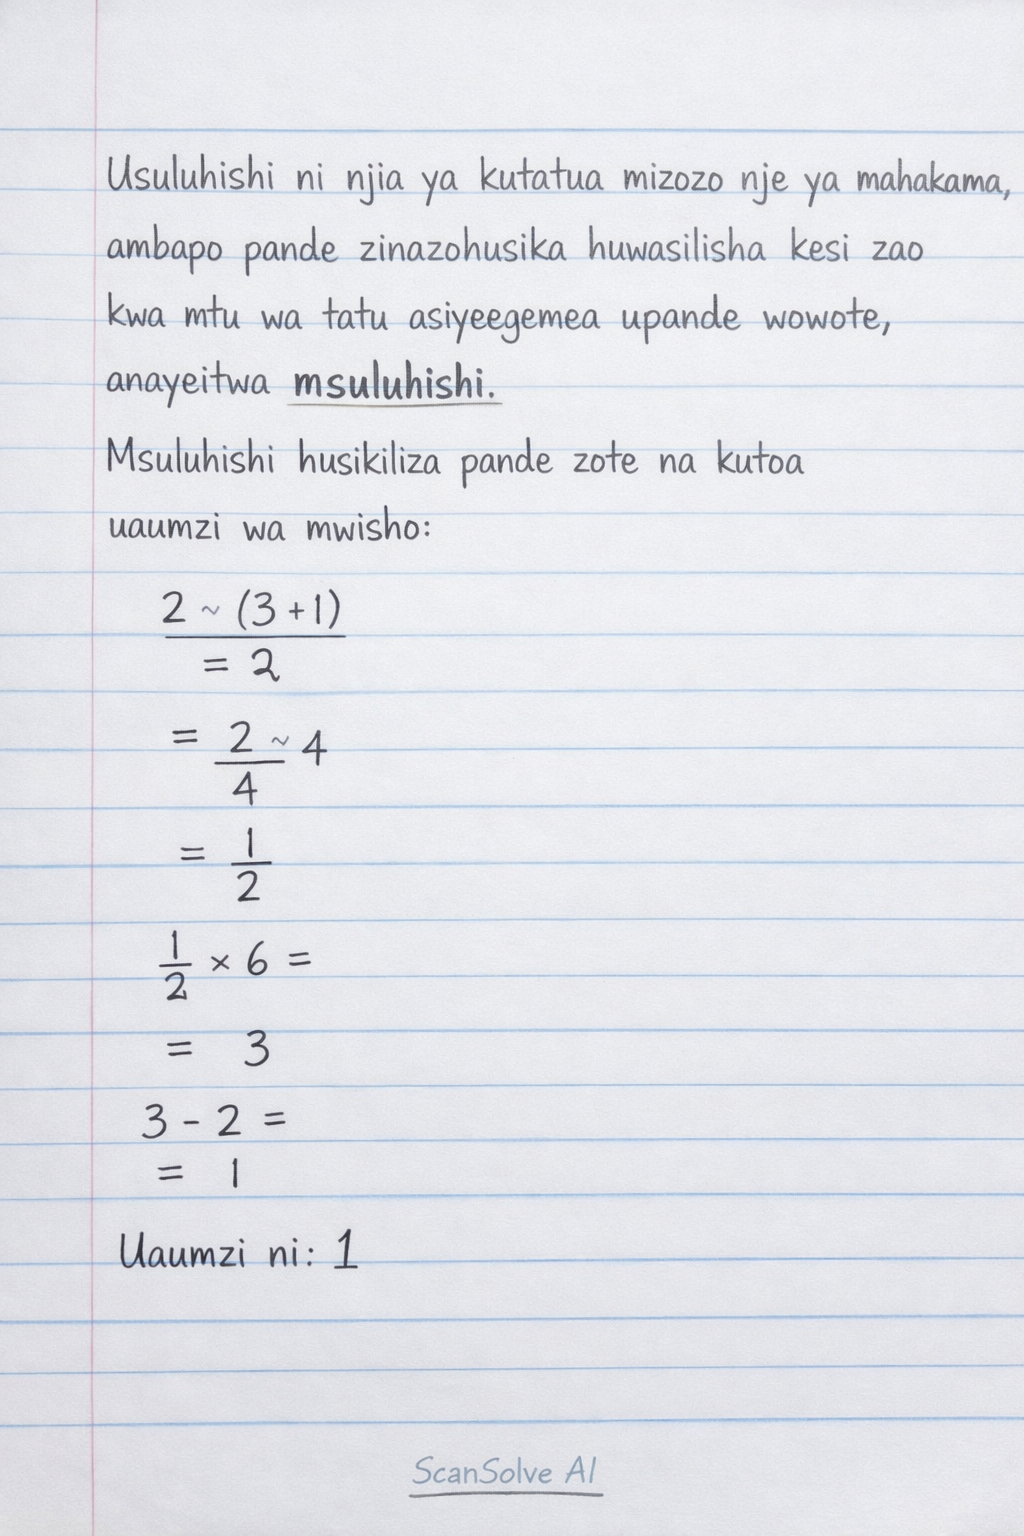 Usuluhishi ni njia ya kutatua mizozo nje ya mahakama,
ambapo pande zinazohusika huwasilisha kesi zao
kwa mtu wa tatu asiyeegemea upande wowote,
anayeitwa msuluhishi.
Msuluhishi husikiliza pande zote na kutoa
uaumzi wa mwisho:
2 ~ (3 + 1)
= 2
= 2 ~ 4
4
= 1
2
1
2 × 6 =
= 3
3 - 2 =
= 1
Uaumzi ni: 1
ScanSolve AI